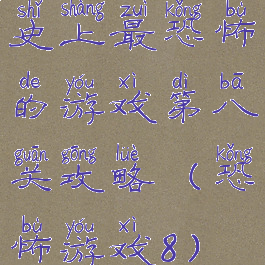 shǐ shàng zuì kǒng bù
史上最恐怖
de yóu xì dì bā
的游戏第八
guān gōng lüè kǒng
关攻略（恐
bù yóu xì
怖游戏8）